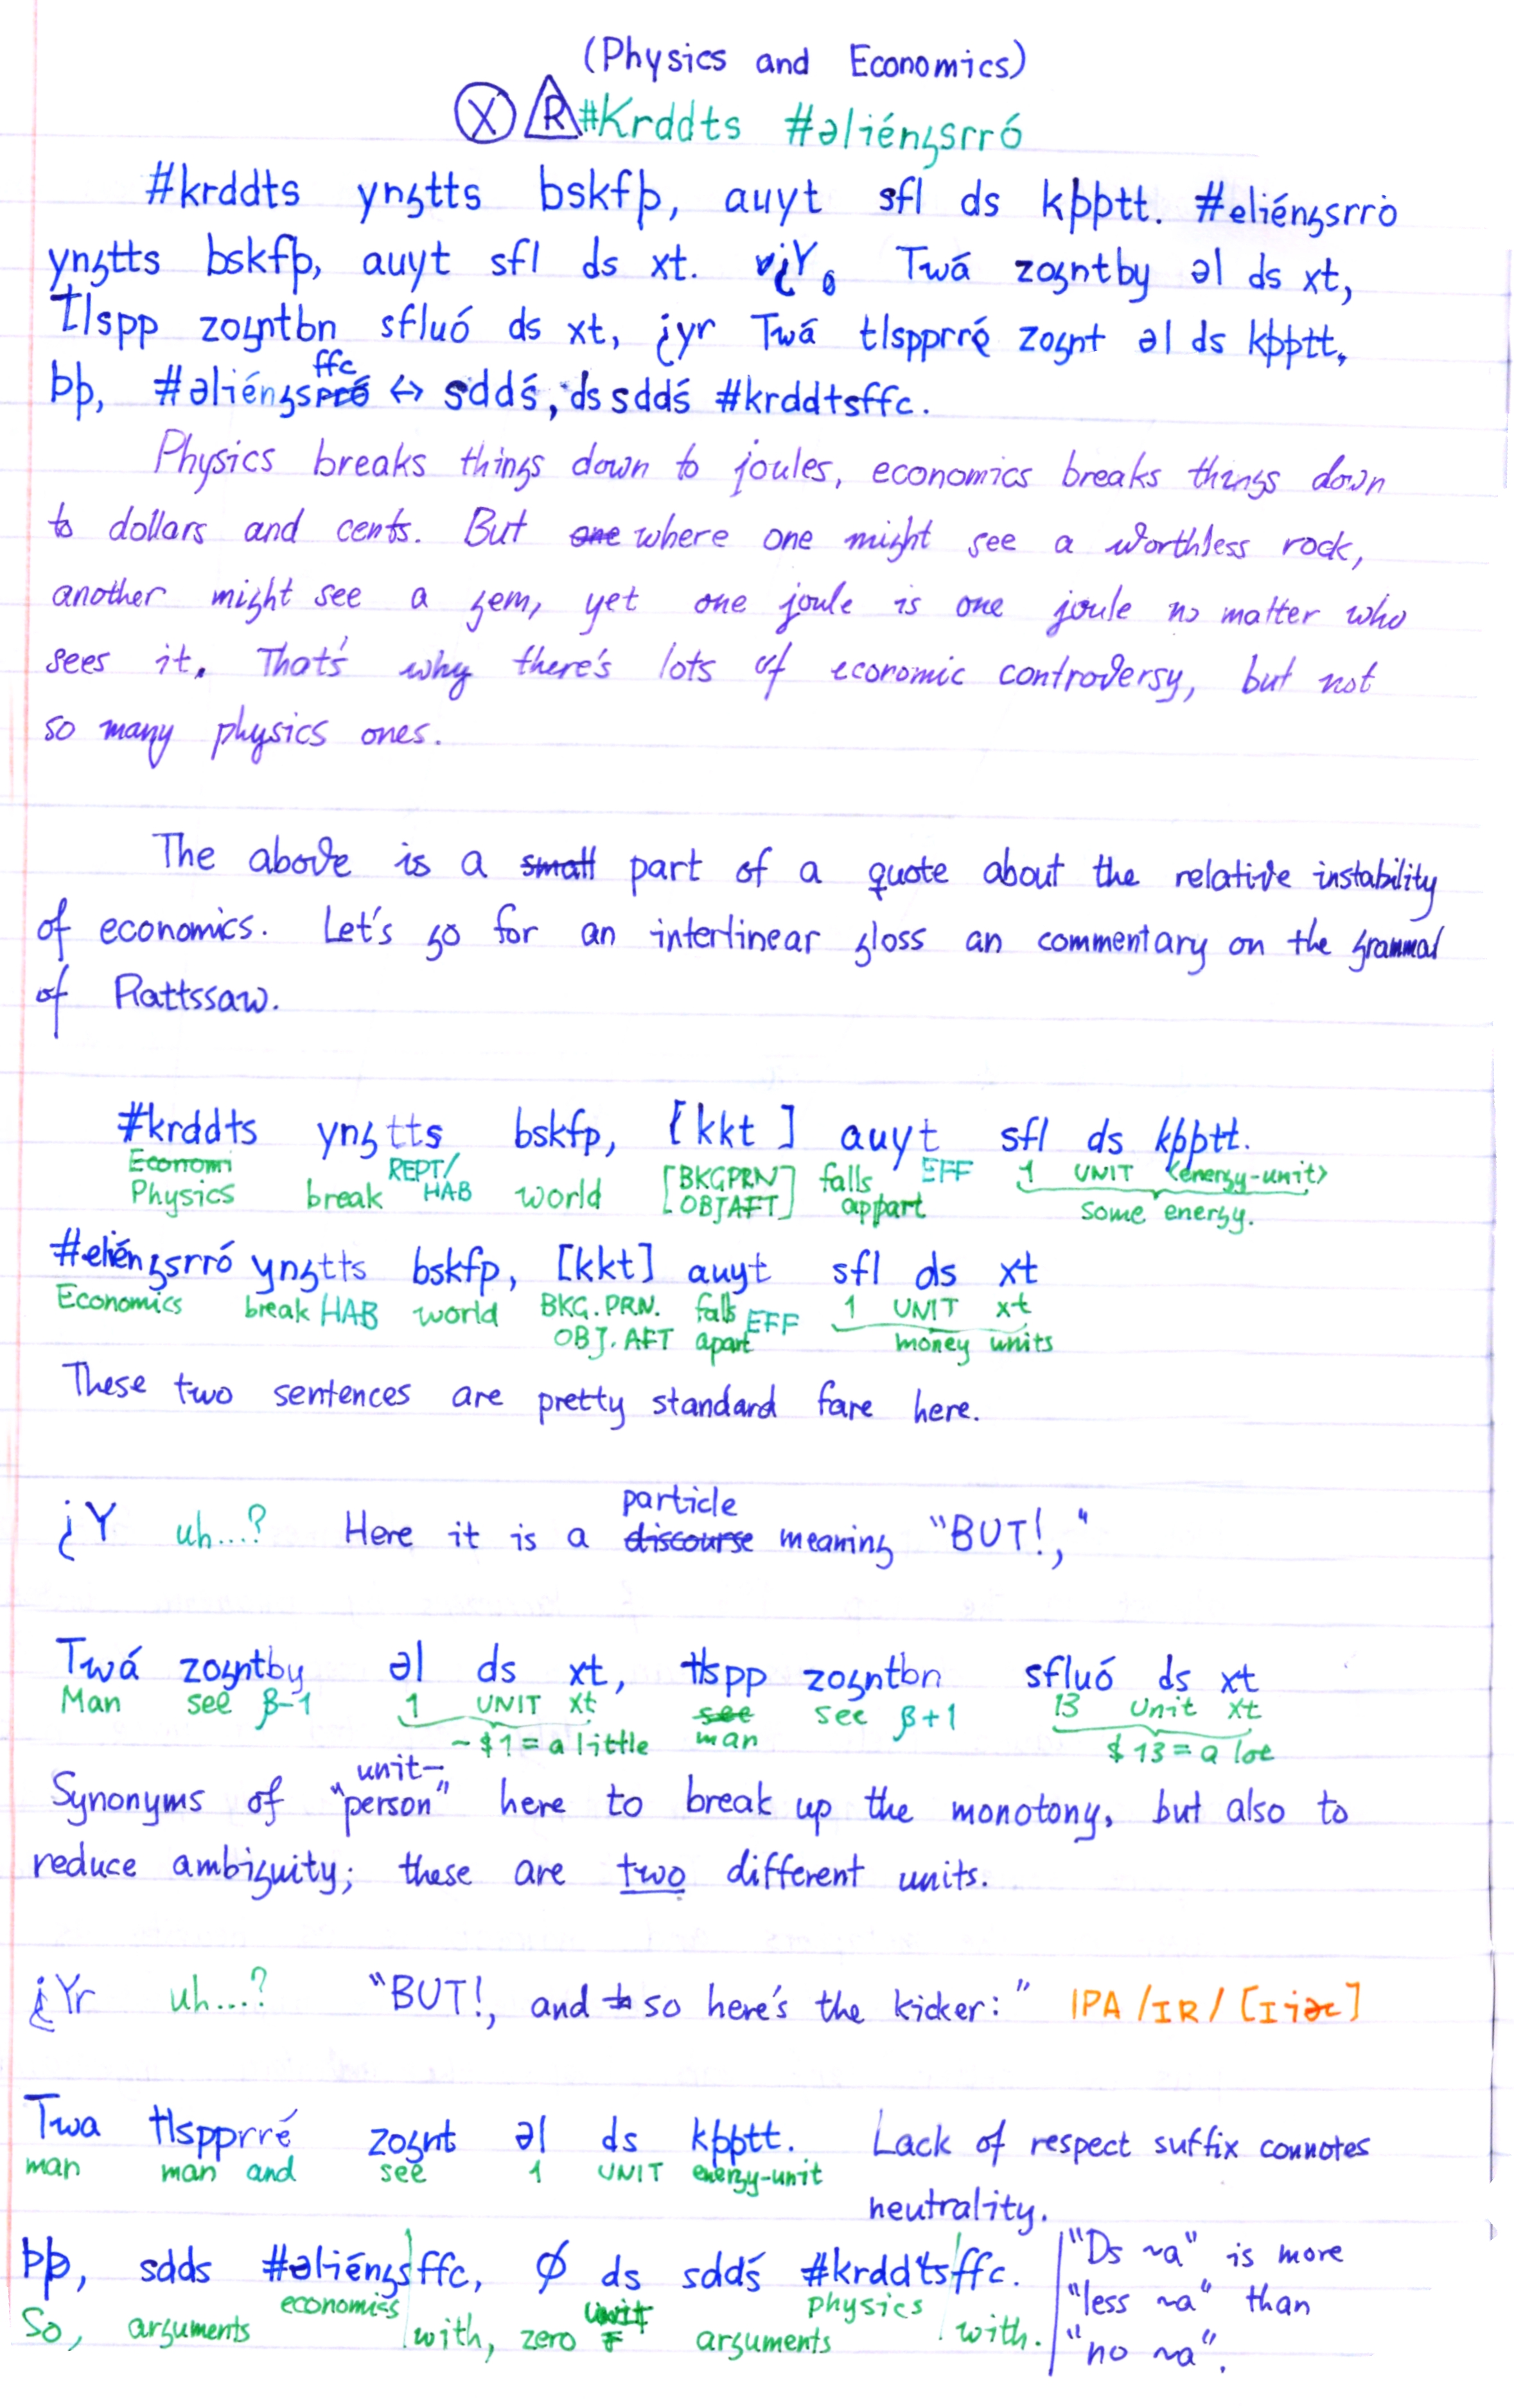 (Physics and Economics)
Ⓧ R #Krddts #əliéngsrró
#krddts yngtts bskfþ, auyt sfl ds kþþtt. #eliéngsrró
yngtts bskfþ, auyt sfl ds xt. ¿Y. Twá zogntby əl ds xt,
tlspp zogntbn sfluó ds xt, ¿yr Twá tlspprré zognt əl ds kþþtt.
þþ, #əliéngsffc ↔ sddś, ds sddś #krddtsffc.
Physics breaks things down to joules, economics breaks things down
to dollars and cents. But one where one might see a worthless rock,
another might see a gem, yet one joule is one joule no matter who
sees it. That's why there's lots of economic controversy, but not
so many physics ones.
The above is a small part of a quote about the relative instability
of economics. Let's go for an interlinear gloss an commentary on the grammar
of Rattssaw.
#krddts yngtts bskfp, [kkt] auyt sfl ds kþþtt.
Economi REPT/ [BKGPRN] falls EFF 1 UNIT <energy-unit>
Physics break HAB world [OBJAFT] appart some energy.
#eliéngsrró yngtts bskfp, [kkt] auyt sfl ds xt
Economics break HAB world BKG.PRN. falls EFF 1 UNIT xt
OBJ.AFT apart money units
These two sentences are pretty standard fare here.
¿Y uh...? Here it is a discourse particle meaning "BUT!,"
Twá zogntby əl ds xt, tlspp zogntbn sfluó ds xt
Man see β-1 1 UNIT xt see man see β+1 13 Unit xt
~$1 = a little $13 = a lot
Synonyms of "unit-person" here to break up the monotony, but also to
reduce ambiguity; these are two different units.
¿Yr uh...? "BUT!, and so here's the kicker:" IPA /IR/ [Iiəc]
Twa tlspprré zognt əl ds kþþtt. Lack of respect suffix connotes
man man and see 1 UNIT energy-unit neutrality.
þþ, sdds #əliéngsffc, ∅ ds sddś #krddtsffc. "Ds ~a" is more
So, arguments economics with, zero arguments physics with. "less ~a" than
"no ~a".